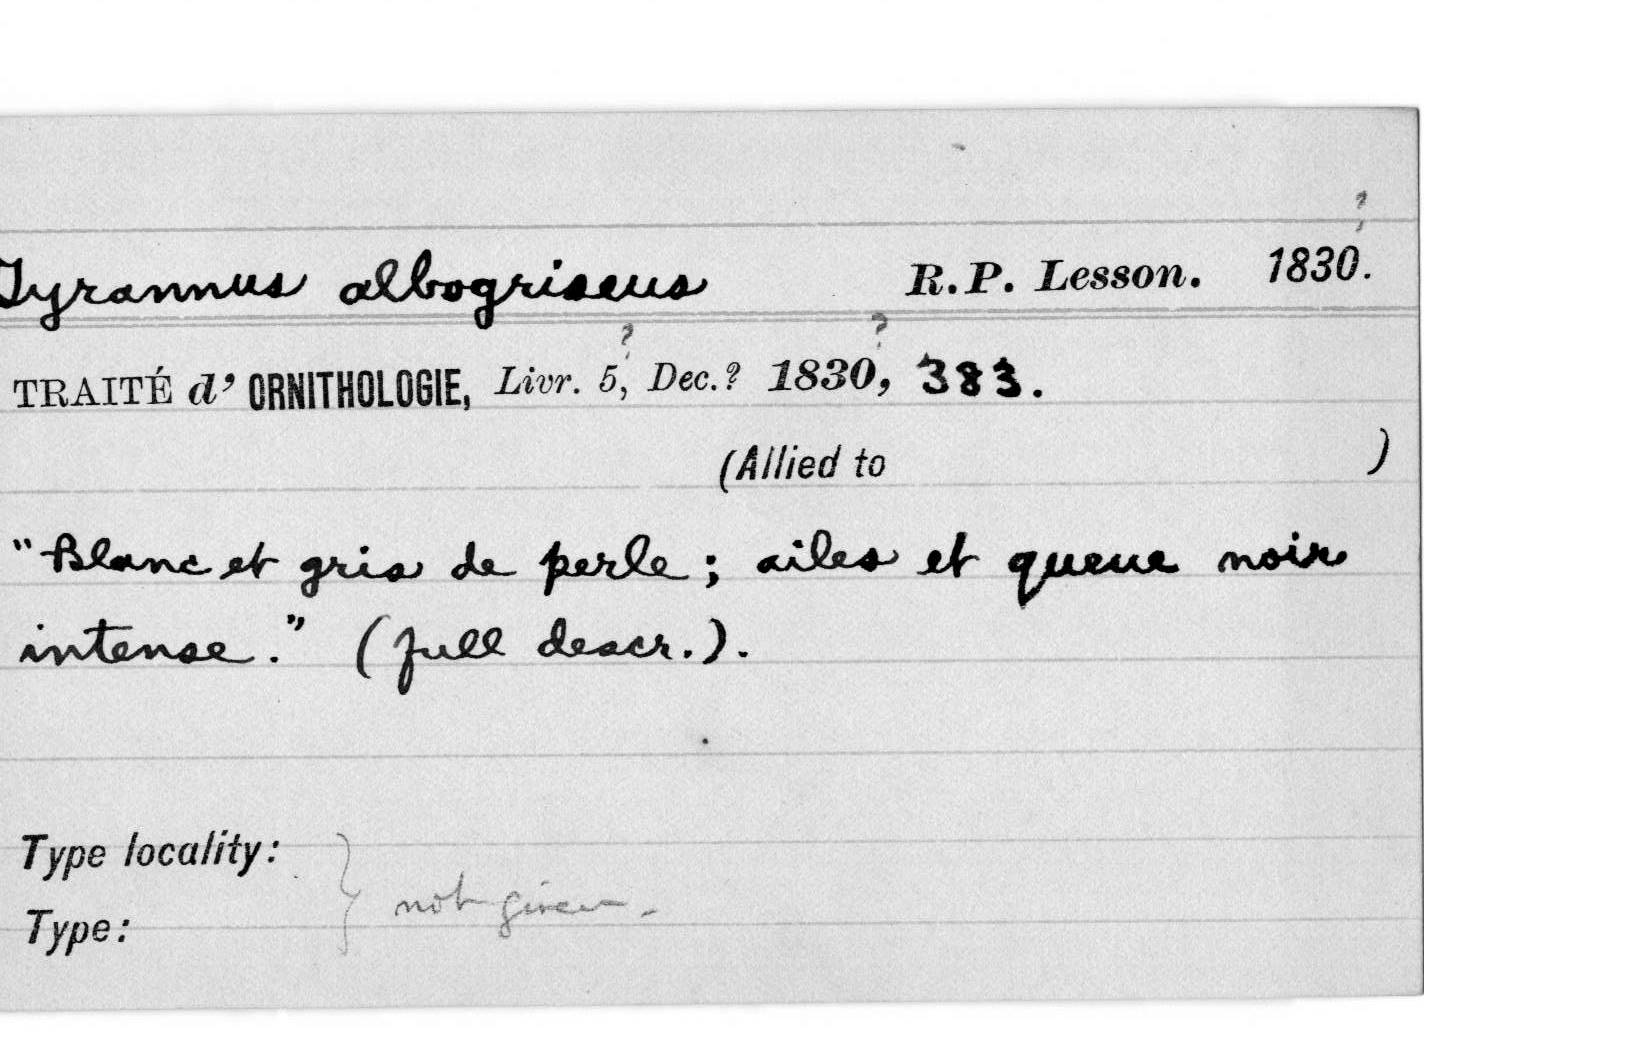 ?
Tyrannus albogriseus R.P. Lesson. 1830.
? ?
TRAITÉ d' ORNITHOLOGIE, Livr. 5, Dec.? 1830, 383.
(Allied to )
"Blanc et gris de perle; ailes et queue noir
intense." (full descr.).
Type locality: } not given.
Type: